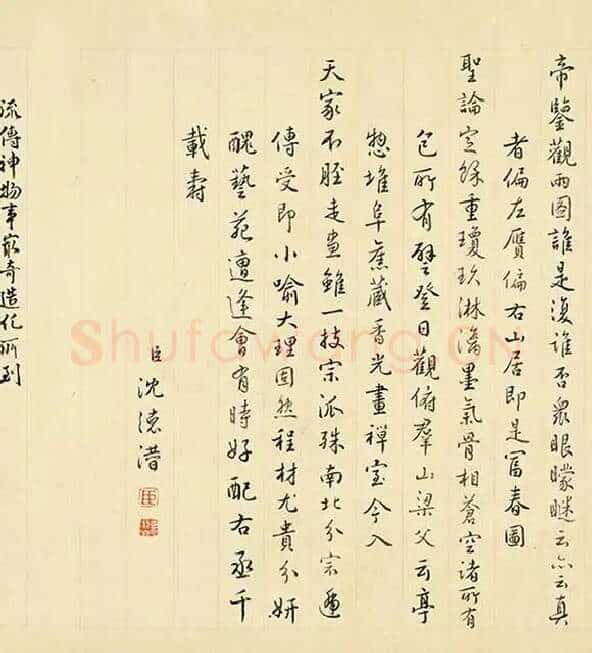 帝鑒觀兩圖誰是復誰否衆眼矇瞇云亦云真
者偏左贗偏右山居即是富春圖
聖論定餘重瓊玖淋漓墨氣骨相蒼空諸所有
包所有譬登日觀俯羣山梁父云亭
惣堆阜舊藏香光畫禪室今入
天家不脛走畫雖一技宗派殊南北分宗遞
傳受即小喻大理固然程材尤貴分妍
醜藝苑遭逢會有時好配右丞千
載壽
臣沈德潛
流傳神物事最奇造化所到
Shufawang.CN